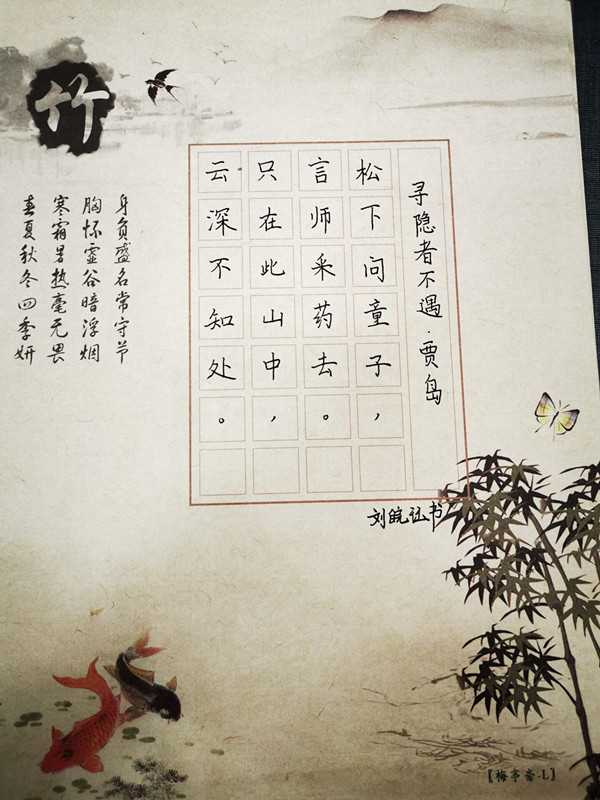 寻隐者不遇·贾岛
松下问童子，
言师采药去。
只在此山中，
云深不知处。
刘皖证书
竹
身负盛名常守节
胸怀虚谷暗浮烟
寒霜暑热毫无畏
春夏秋冬四季妍
【梅亭斋-L】